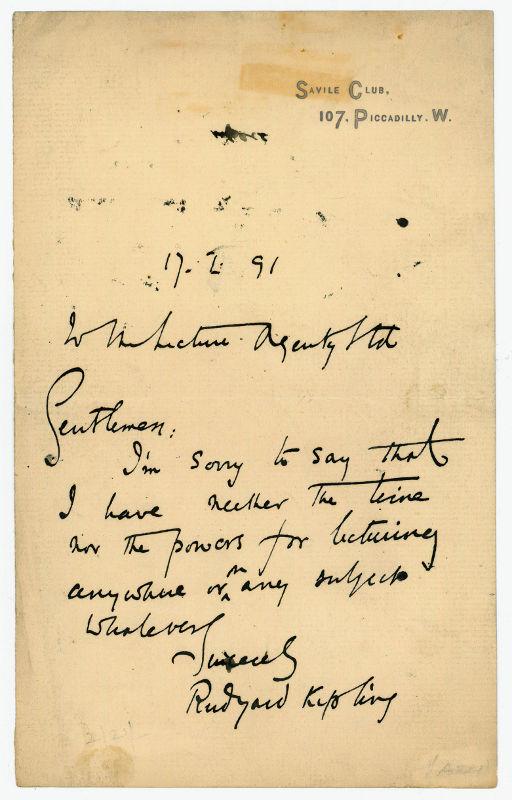 SAVILE CLUB,
107, PICCADILLY. W.
17. I. 91
To the Lecture Agency Ltd
Gentlemen:
I'm sorry to say that
I have neither the time
nor the powers for lecturing
anywhere or on any subject
whatever
Sincerely
Rudyard Kipling